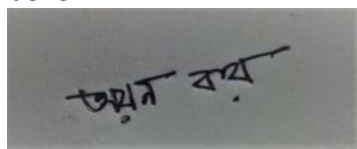 অয়ন রায়